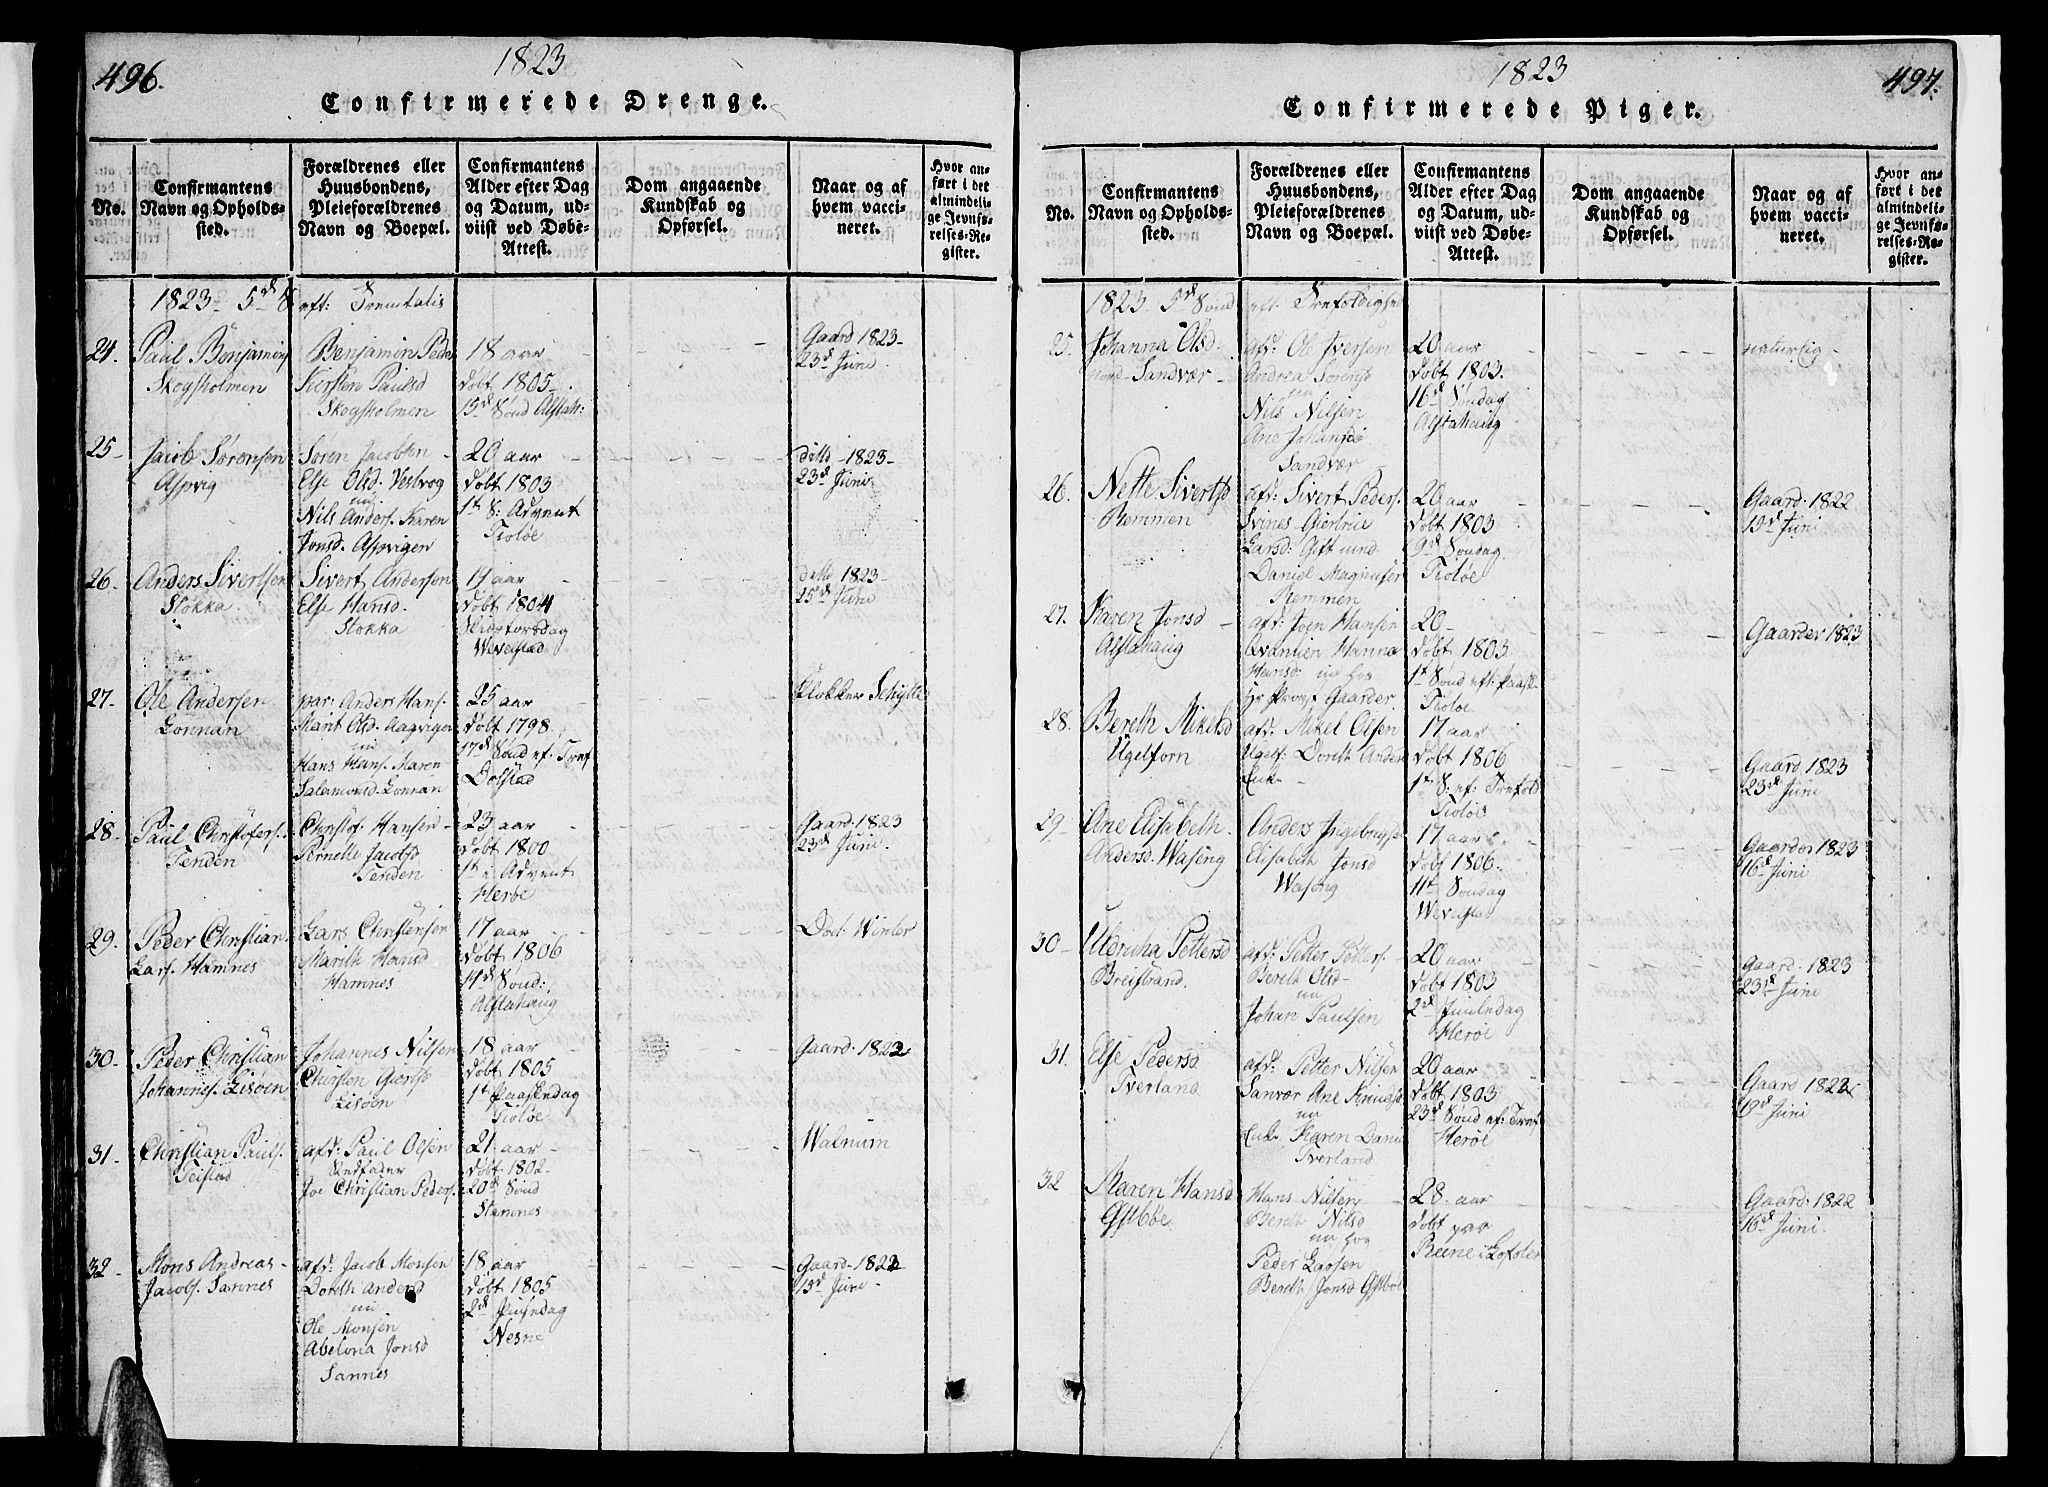 496.
1823
Confirmerede Drenge.
No.
Confirmantens
Navn og Opholds-
sted.
Forældrenes eller
Huusbondens,
Pleieforældrenes
Navn og Boepæl.
Confirmantens
Alder efter Dag
og Datum, ud-
viist ved Døbe-
Attest.
Dom angaaende
Kundskab og
Opførsel.
Naar og af
hvem vacci-
neret.
Hvor an-
ført i det
almindeli-
ge Jevnfø-
relses-Re-
gister.
1823 - 5d S eft: Trinitatis
24.
Paul Benjamins
Skogsholmen
Benjamin Peder
Kiersten Paulsd
Skogsholmen
18 aar
døbt 1805
13d Sønd Alstah:
Gaard 1823
23d Juni
25
Jacob Sørensen
Aspvig
Søren Jacobsen
Else Olsd. Vesvog
nu
Nils Anders. Karen
Jonsd. Aspvigen
20 aar
døbt 1803
1st S: Advent
Tiøtøe
ditto 1823
23d Juni
26
Anders Sivertsen
Stokka
Sivert Andersen
Else Hansd.
Stokka
19 aar
døbt 1804
Skiærtorsdag
Wevelstad
ditto 1823
25d Juni
27.
Ole Andersen
Lonnan
par: Anders Hans.
Marit Olsd. Aagvigen
nu
Hans Hans. Maren
Salamonsd. Lonnan
25 aar
døbt 1798.
17d Sønd ef: Tref
Dolstad
Klokker Schytte
28
Paul Christofers.
Tenden
Christof Hansen
Pernelle Jacobsd
Tenden
23 aar
døbt 1800
1st i Advent
Herøe
Gaard 1823
23d Juni.
29.
Peder Christian
Lars. Hamnes
Lars Christensen
Marith Hansd
Hamnes
17 aar
døbt 1806
4d Sønd:
Alstahaug
Doct: Winter
30.
Peder Christian
Johannes. Lisøen
Johannes Nilsen
Chirsten Giertsd
Lisøen
18 aar
døbt 1805
1st Paaskedag
Tiøtøe
Gaard. 1822
31
Christian Pauls.
Teistad
afd: Paul Olsen
Stedfader
Joe Christian Peders.
21 aar
døbt 1802
20d Sønd
Stamnes
Walnum
32
Mons Andreas
Jacobs. Sannes
afd: Jacob Monsen
Dorith Andersd
nu
Ole Monsen
Abelona Jonsd
Sannes
18 aar
døbt 1805
2d Pinsedag
Nesne
Gaard 1822
13d Juni
1823
497.
Confirmerede Piger.
No.
Confirmantens
Navn og Opholds-
sted.
Forældrenes eller
Huusbondens,
Pleieforældrenes
Navn og Boepæl.
Confirmantens
Alder efter Dag
og Datum, ud-
viist ved Døbe-
Attest.
Dom angaaende
Kundskab og
Opførsel.
Naar og af
hvem vacci-
neret.
Hvor an-
ført i det
almindeli-
ge Jevnfø-
relses-Re-
gister.
1823 5d Sønd eft: Trefoldighed
25.
Johanna Olsd
Sandvær
afd: Ole Iversen
Andrea Sørensd
nu
Nils Nilsen
Ane Johansd
Sandvær
20 aar
døbt 1803.
16d Søndag
Alstahaug
naturlig
26.
Nette Sivertsd
Remmen
afd: Sivert Peders.
Svines Giertrue
Larsd: Gift med
Daniel Magnuser
Remmen
20 aar
døbt 1803
9d Søndag
Tiøtøe
Gaard. 1822
13d Juni
27.
Karen Jonsd
Alstahaug
afd: Joen Hansen
Qvantien Hanna
Hansd: nu hos
Hr Provst Gaarder
20
døbt 1803
1st Sønd eft: Paaske
Tiøtøe
Gaarder 1823
28.
Bereth Mikelsd
Ugelforn
afd: Mikel Olsen
Ugelf. Dorith Anders
Enke
17 aar
døbt 1806
1st S: ef: Trefold
Tiøtøe
Gaard 1823
23d Juni
29
Ane Elisabeth
Andersd. Waseng
Anders Ingebrigts
Elisabeth Jonsd
Waseng
17 aar
døbt 1806.
11te Søndag
Wevelstad
Gaarder 1823
16d Juni
30
Ulricha Pettersd
Breistrand.
afd: Petter Petters.
Bereth Olsd
nu
Johan Paulsen
20 aar
døbt 1803
2d Juuledag
Herøe
Gaard. 1823
23d Juni
31.
Else Pedersd
Tverland
afd: Petter Nilsen
Sanvær Ane Knudsd
nu
Enke Karen Dani
Tverland
20 aar
døbt 1803
23d Sønd ef: Tref
Herøe
Gaard 1822
19d Juni
32
Maren Hansd
Hans Nilsen
Bereth Nilsd
nu hos
Peder Larsen
Bereth Jonsd
28 aar
døbt paa
Reine i Lofoten
Gaard. 1822
16d Juni.